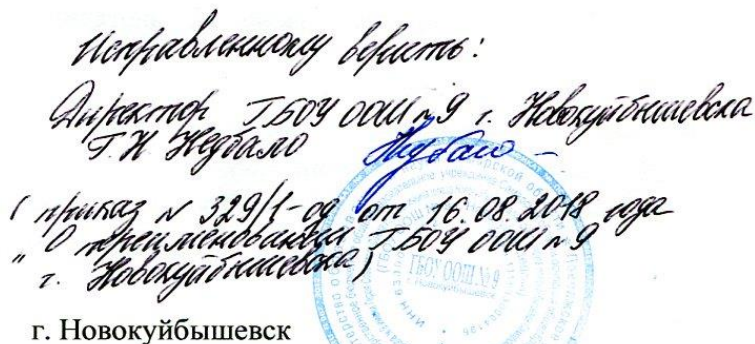 Исправленному верить:
Директор ГБОУ ООШ № 9 г. Новокуйбышевска
Г.Н Недбало
(приказ № 329/1-од от 16.08.2018 года
"О переименовании ГБОУ ООШ № 9
г. Новокуйбышевска)
ГБОУ ООШ № 9
г. Новокуйбышевск